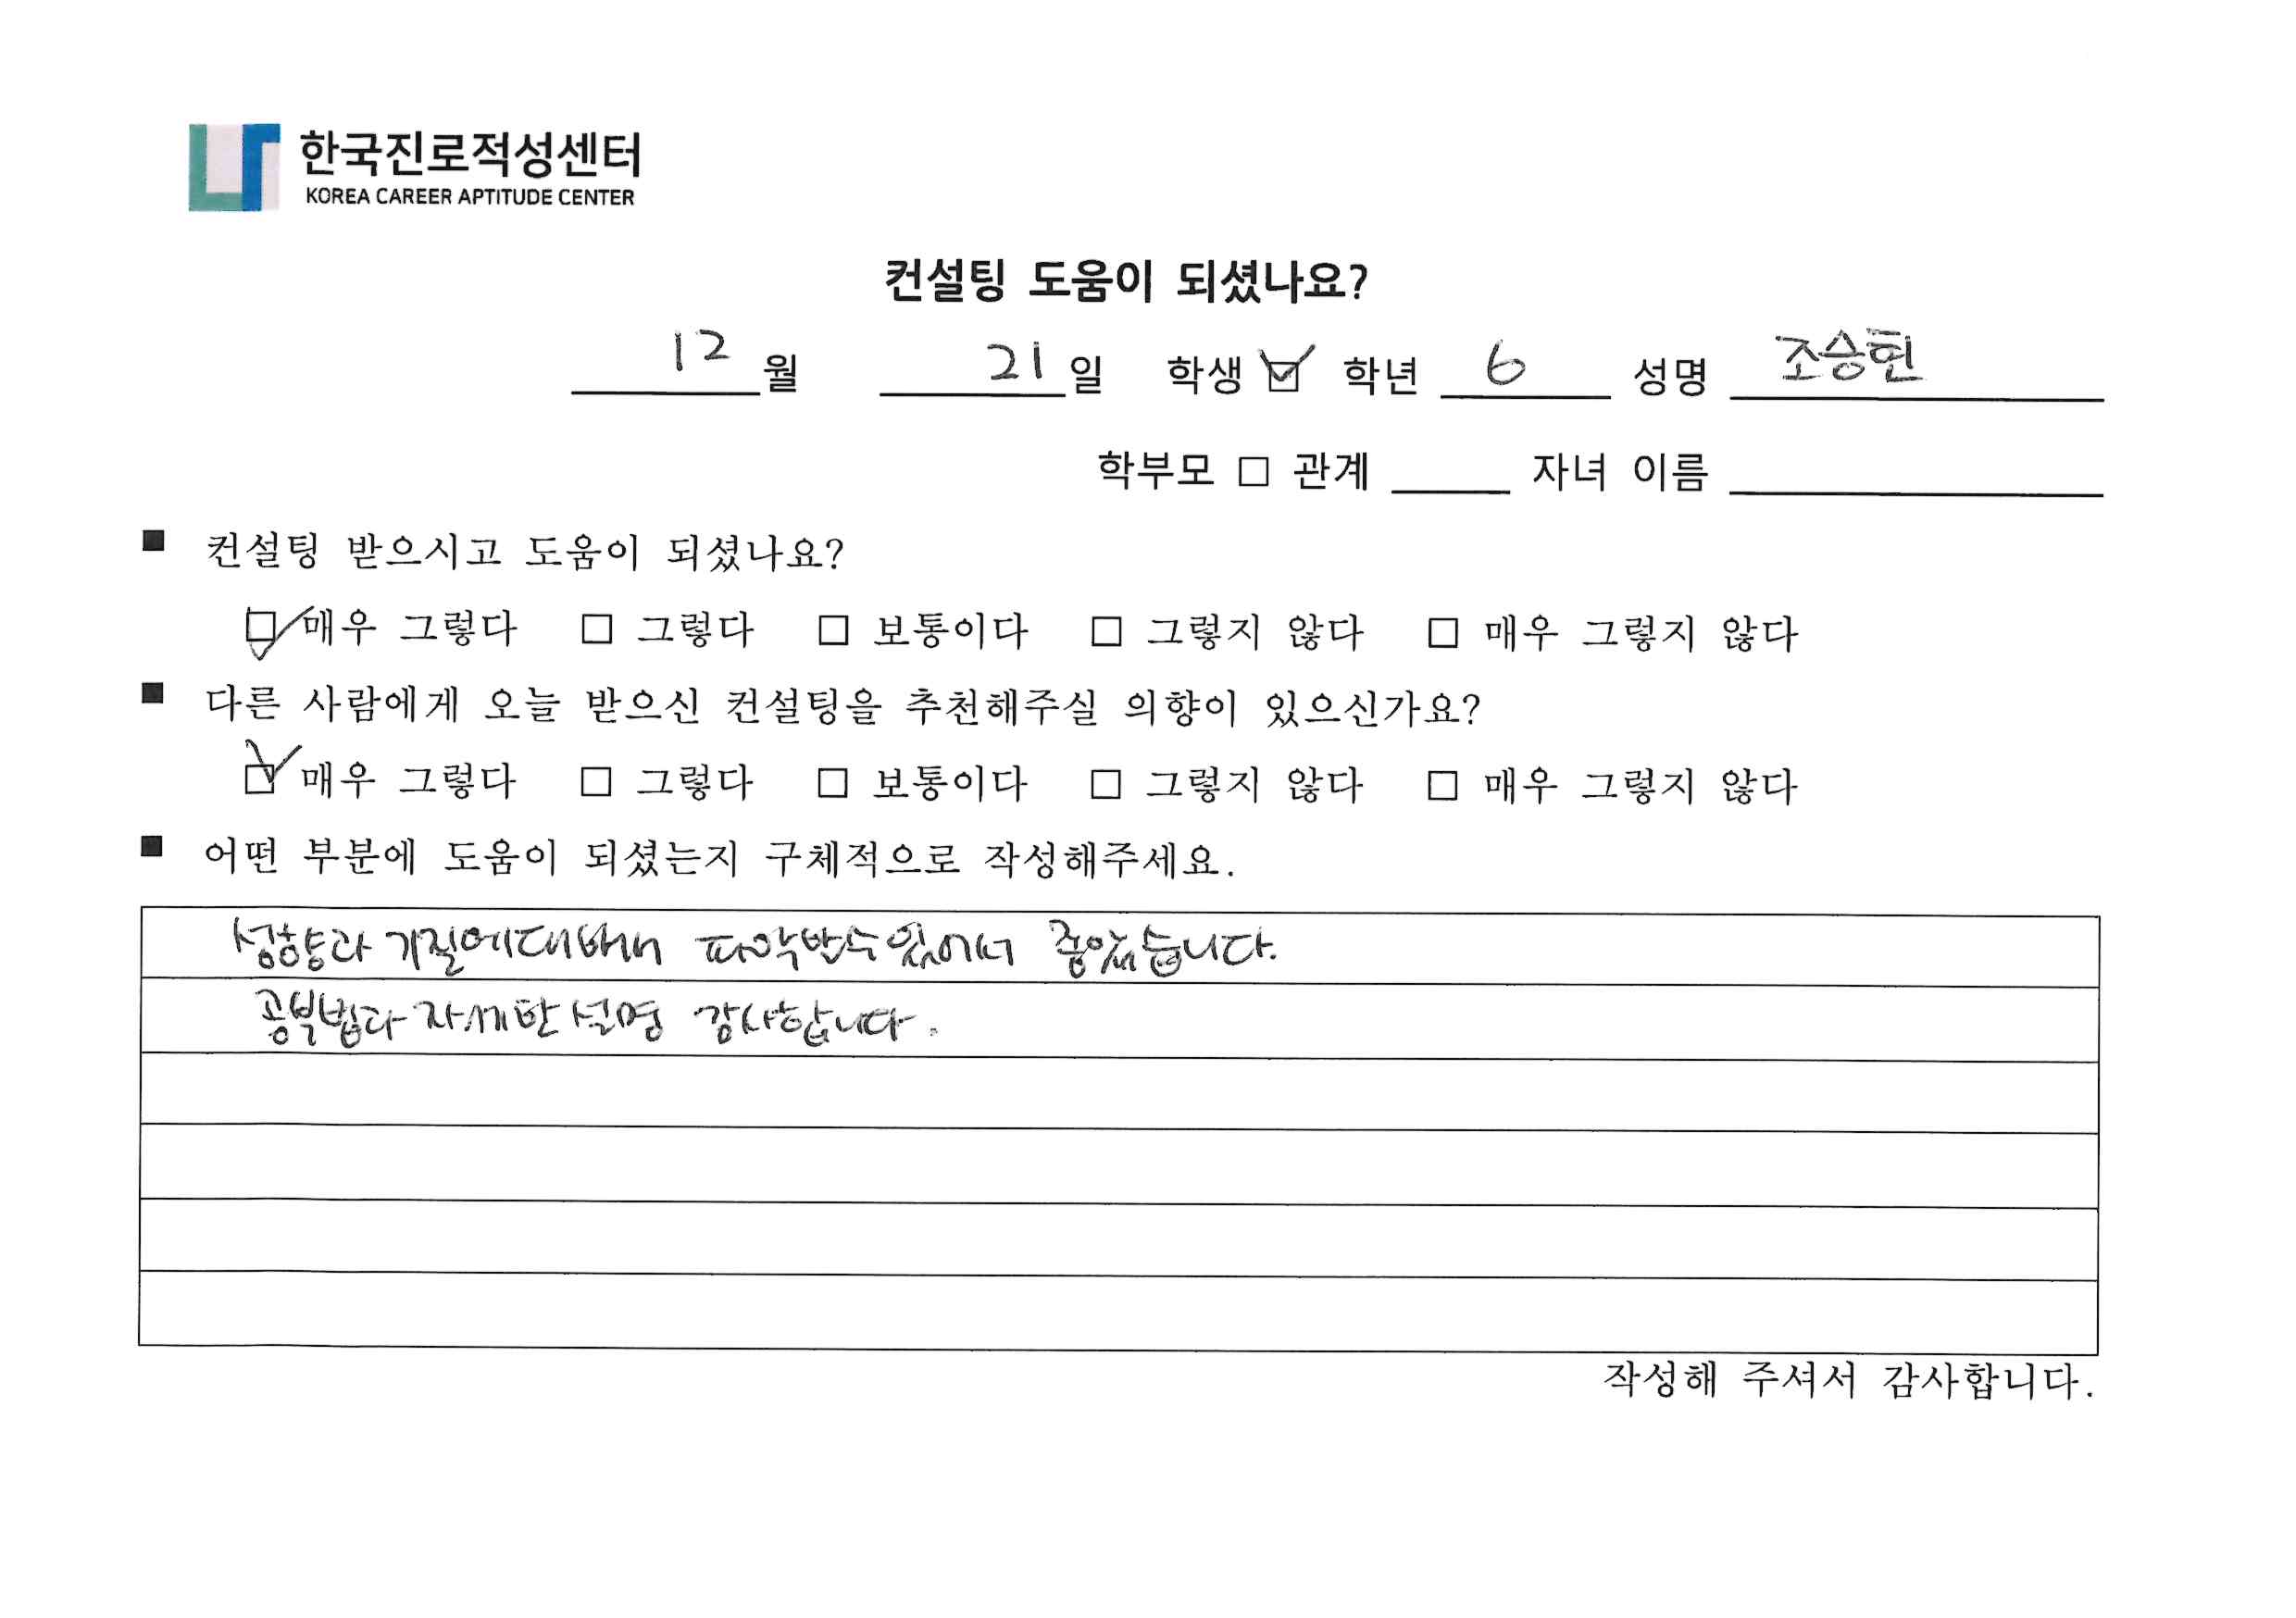 한국진로적성센터
KOREA CAREER APTITUDE CENTER
컨설팅 도움이 되셨나요?
12 월 21 일 학생 ☑ 학년 6 성명 조승현
학부모 □ 관계 자녀 이름
■ 컨설팅 받으시고 도움이 되셨나요?
☑ 매우 그렇다 □ 그렇다 □ 보통이다 □ 그렇지 않다 □ 매우 그렇지 않다
■ 다른 사람에게 오늘 받으신 컨설팅을 추천해주실 의향이 있으신가요?
☑ 매우 그렇다 □ 그렇다 □ 보통이다 □ 그렇지 않다 □ 매우 그렇지 않다
■ 어떤 부분에 도움이 되셨는지 구체적으로 작성해주세요.
성향과 기질에대해서 파악할수있어서 좋았습니다.
공부법과 자세한 설명 감사합니다.
작성해 주셔서 감사합니다.